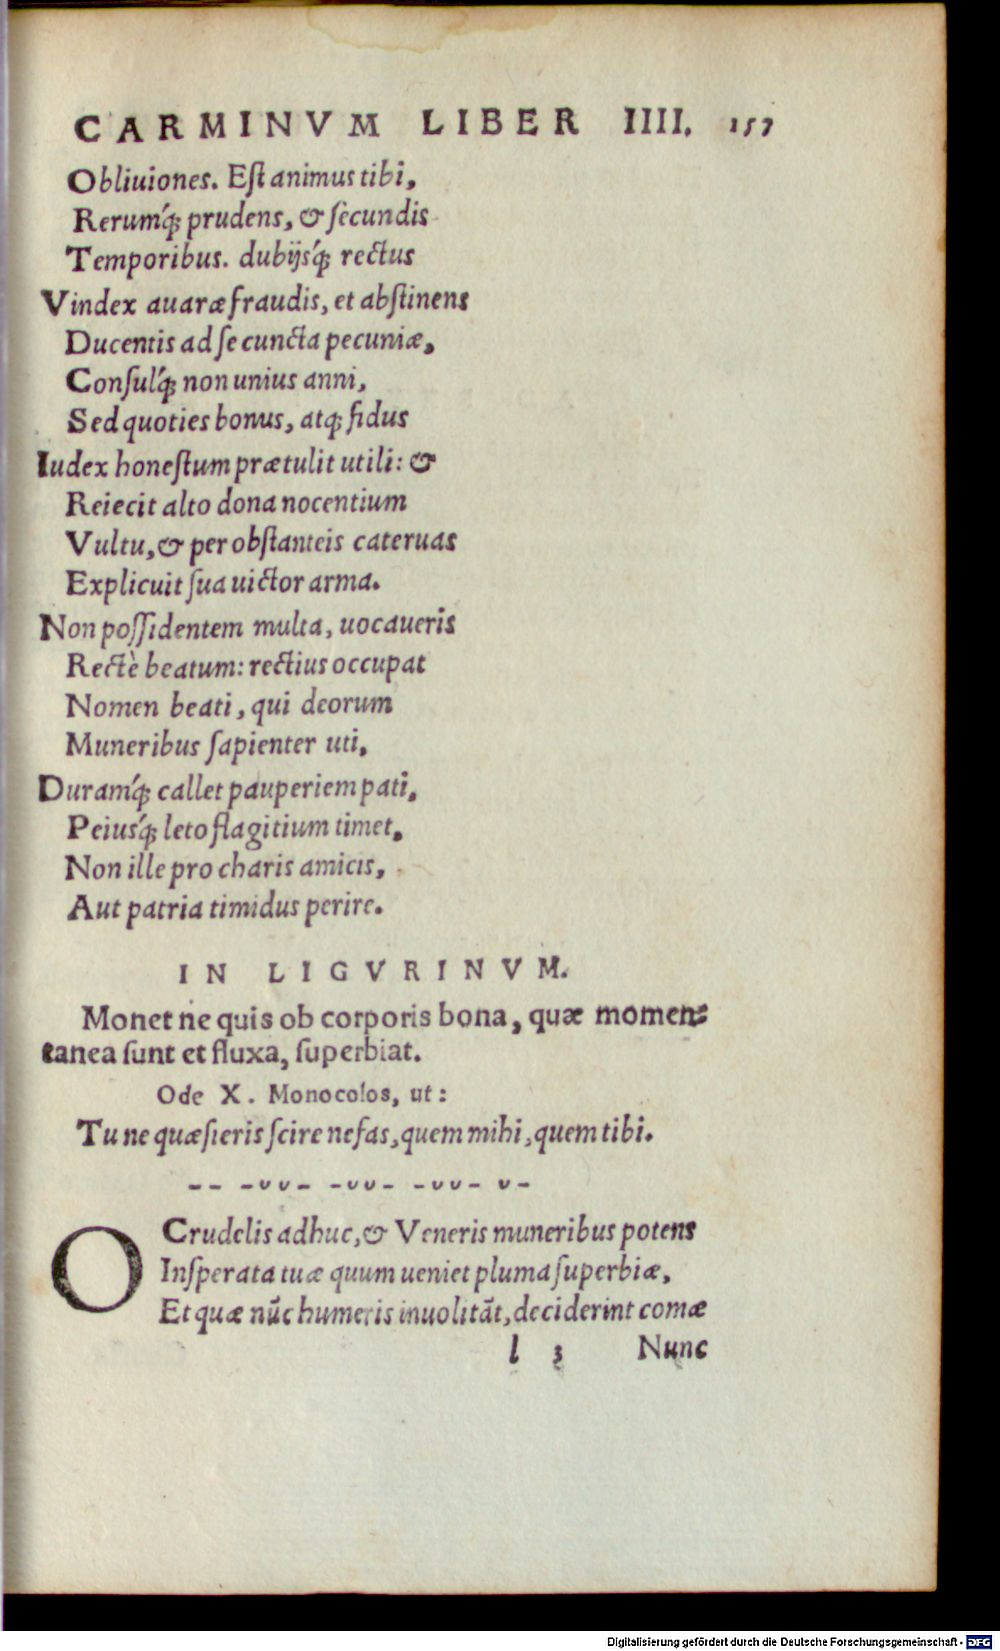 CARMINVM LIBER IIII. 157
Obliuiones. Eſt animus tibi,
Rerumq́; prudens, & ſecundis
Temporibus. dubijsq́; rectus
Vindex auaræ fraudis, et abſtinens
Ducentis ad ſe cuncta pecuniæ,
Conſulq́; non unius anni,
Sed quoties bonus, atq; fidus
Iudex honeſtum prætulit utili: &
Reiecit alto dona nocentium
Vultu, & per obſtanteis cateruas
Explicuit ſua uictor arma.
Non poſſidentem multa, uocaueris
Rectè beatum: rectius occupat
Nomen beati, qui deorum
Muneribus ſapienter uti,
Duramq́; callet pauperiem pati,
Peiusq́; leto flagitium timet,
Non ille pro charis amicis,
Aut patria timidus perire.
IN LIGVRINVM.
Monet ne quis ob corporis bona, quæ momen⸗
tanea ſunt et fluxa, ſuperbiat.
Ode X. Monocolos, ut:
Tu ne quæſieris ſcire nefas, quem mihi, quem tibi.
-- -υυ- -υυ- -υυ- υ-
O Crudelis adhuc, & Veneris muneribus potens
Inſperata tuæ quum ueniet pluma ſuperbiæ,
Et quæ nūc humeris inuolitāt, deciderint comæ
l 3 Nunc
Digitalisierung gefördert durch die Deutsche Forschungsgemeinschaft - DFG